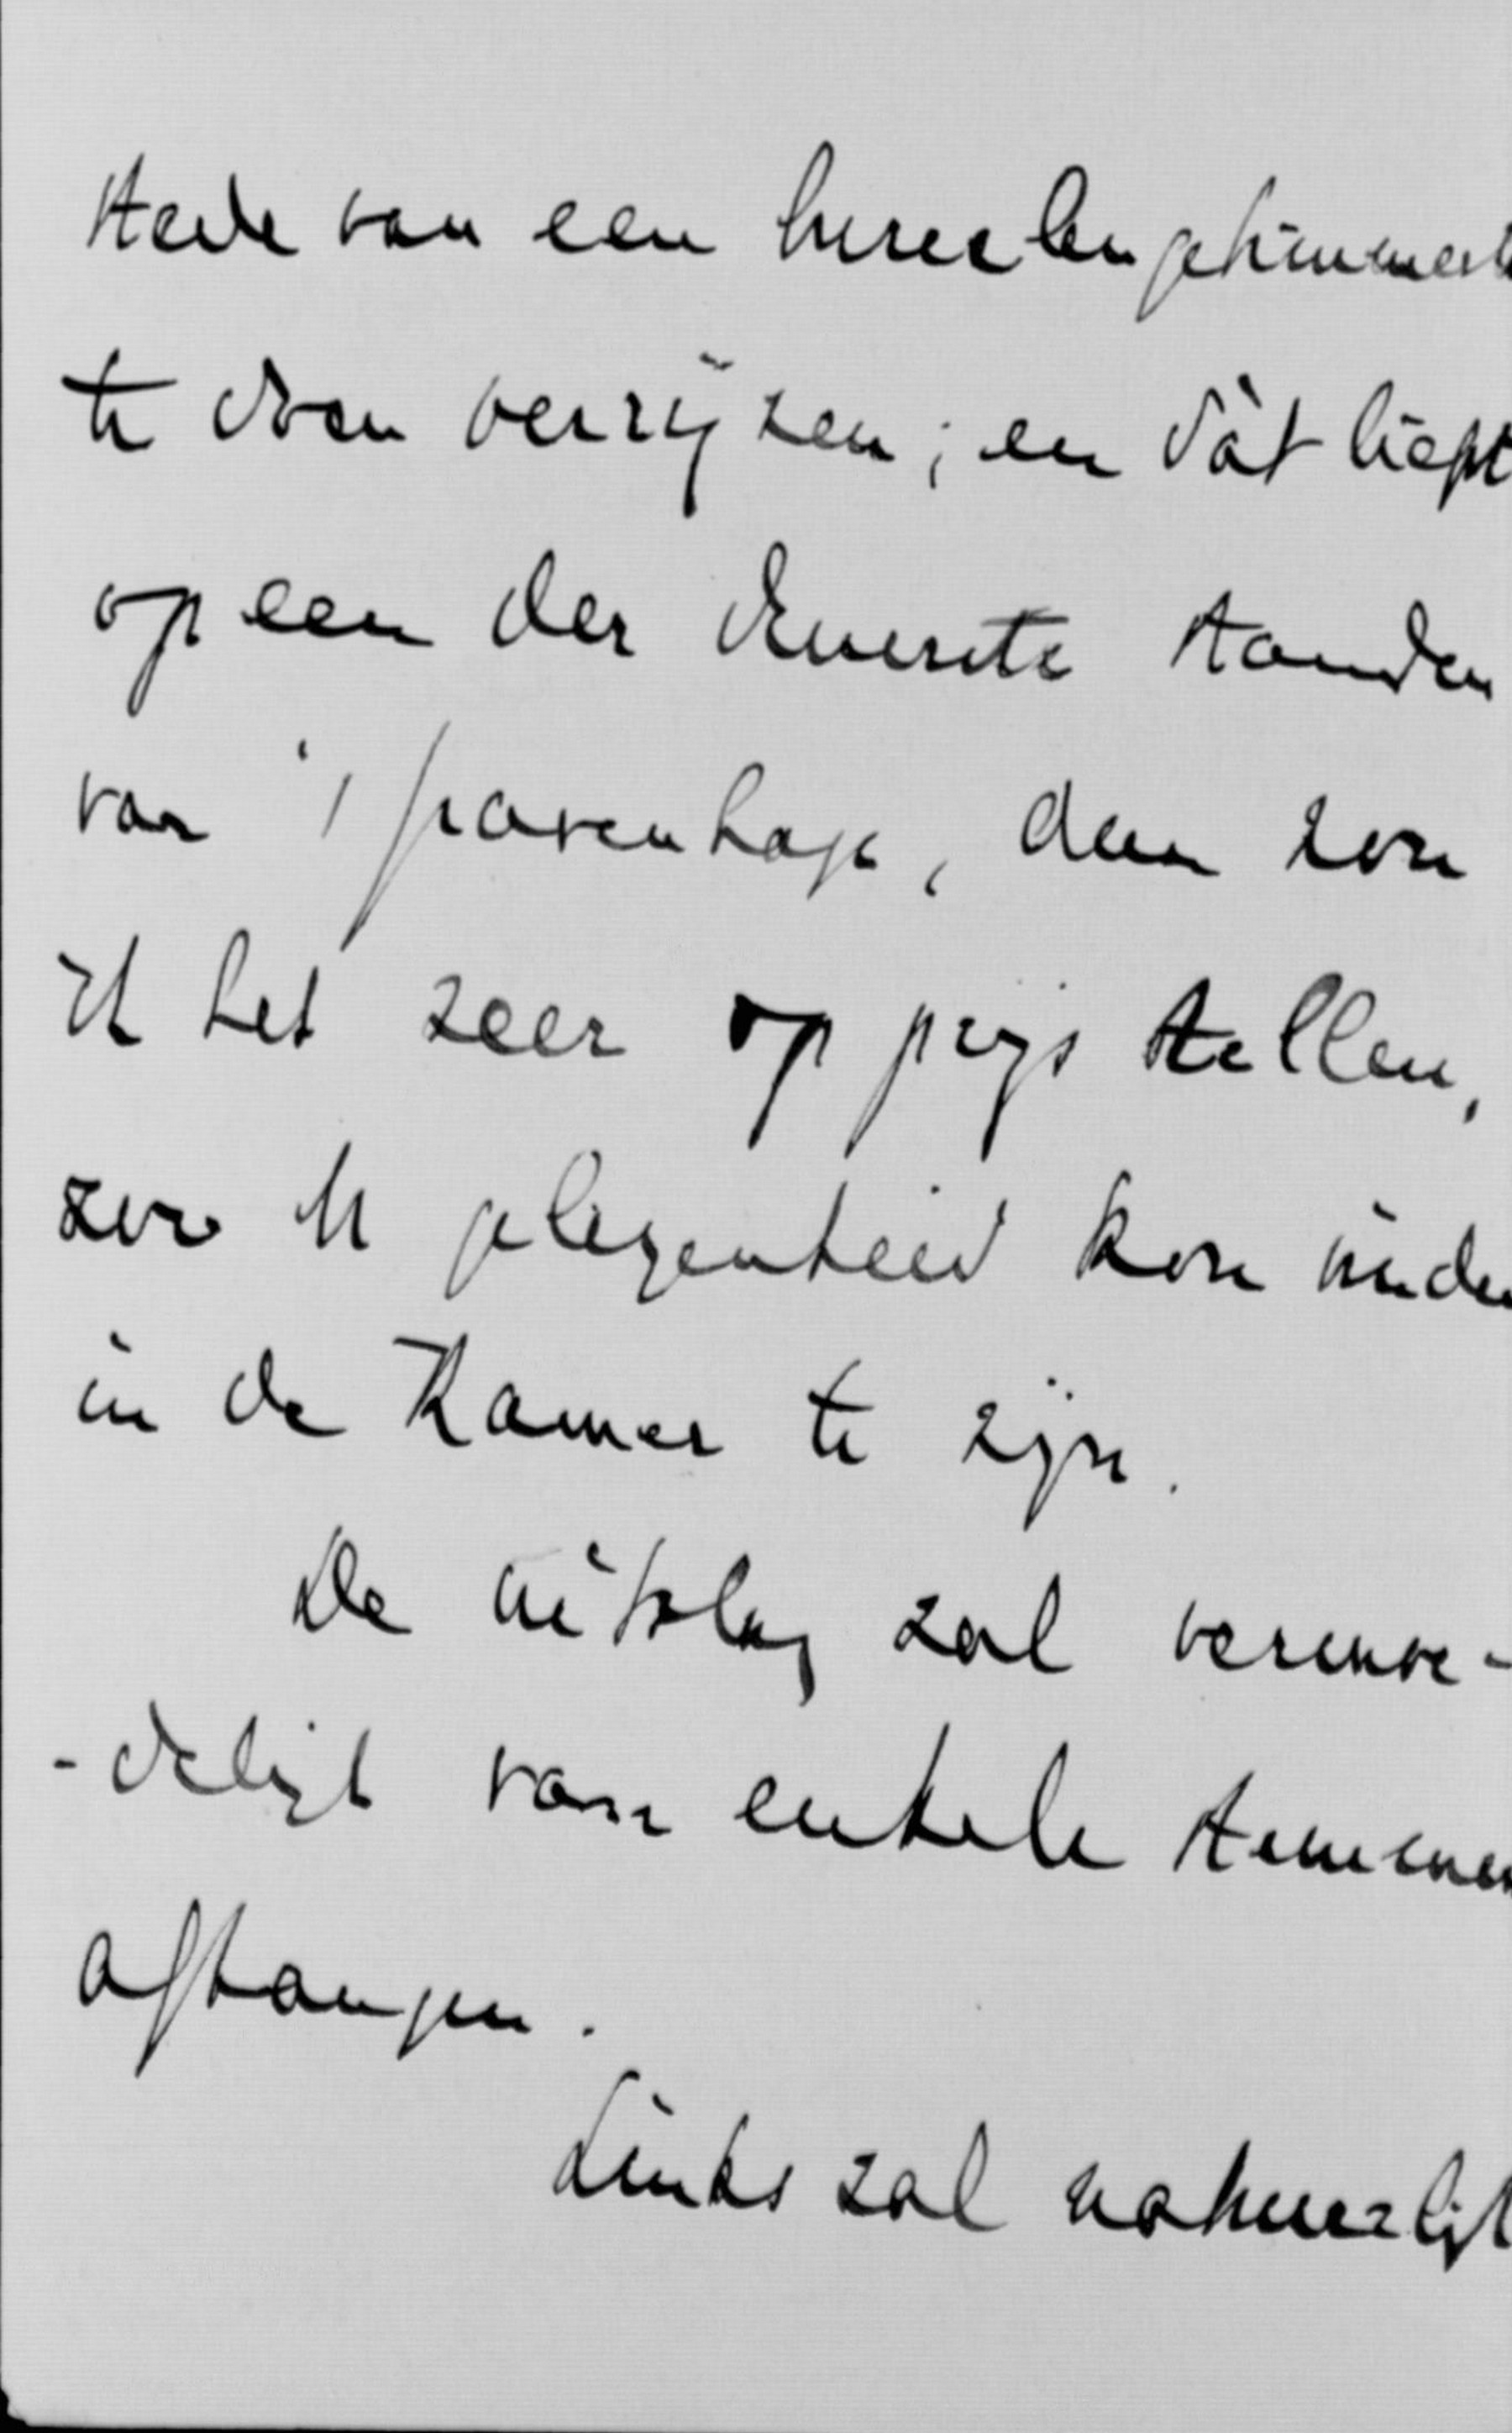 stede van een bureelengetimmerte
te doen verrijzen; en dàt liefst
op een der duurste standen
van 's Gravenhage, dan zou
ik het zeer op prijs stellen,
zoo U gelegenheid kon vinden
in de Kamer te zijn.
De uitslag zal vermoe-
-delijk van enkele stemmen
afhangen.
Links zal natuurlijk